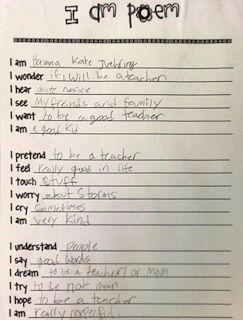 I am poem
I am Hanna Kate Juehring
I wonder if I will be a teacher
I hear qute noice
I see My freinds and family
I want to be a good teacher
I am a good kid
I pretend to be a teacher
I feel really good in life
I touch stuff
I worry about storms
I cry sometimes
I am very kind
I understand people
I say good words
I dream to be a teacher/or Mom
I try to be not mean
I hope to be a teacher
I am really respectful.